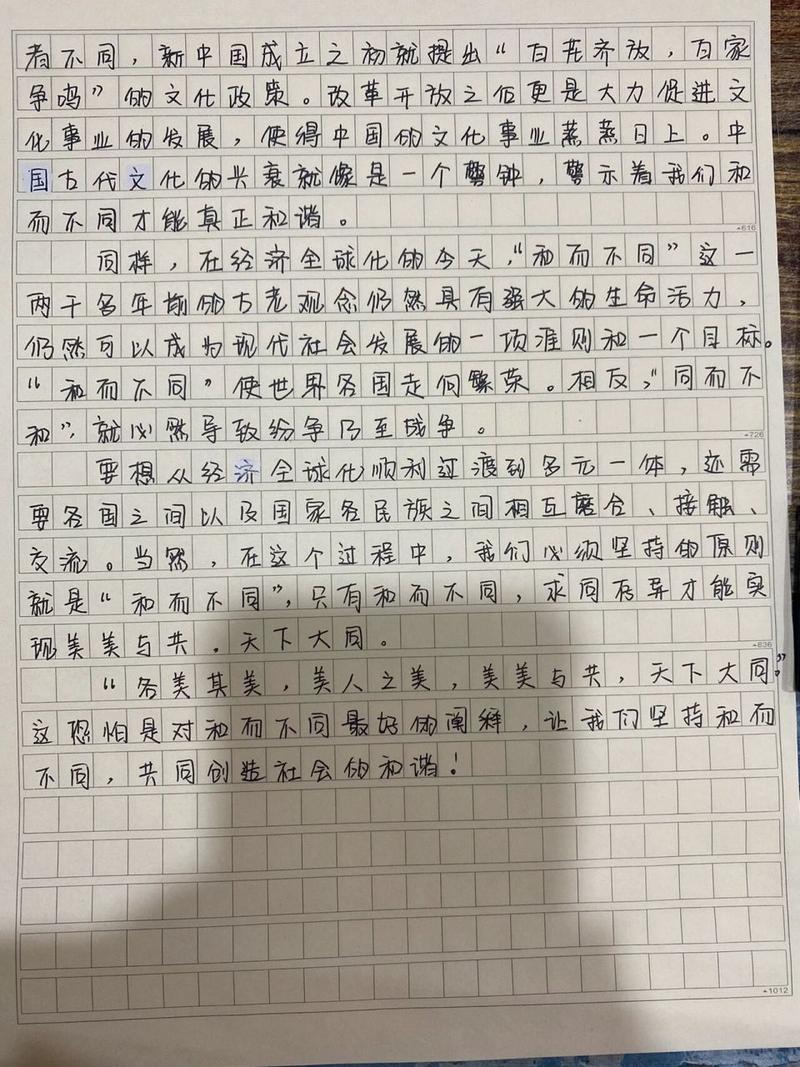 者不同，新中国成立之初就提出“百花齐放，百家
争鸣”的文化政策。改革开放之后更是大力促进文
化事业的发展，使得中国的文化事业蒸蒸日上。中
国古代文化的兴衰就像是一个警钟，警示着我们和
而不同才能真正和谐。
616
同样，在经济全球化的今天，“和而不同”这一
两千多年前的古老观念仍然具有强大的生命活力，
仍然可以成为现代社会发展的一项准则和一个目标。
“和而不同”使世界各国走向繁荣。相反，“同而不
和”，就必然导致纷争乃至战争。
726
要想从经济全球化顺利过渡到多元一体，还需
要各国之间以及国家各民族之间相互磨合、接触、
交流。当然，在这个过程中，我们必须坚持的原则
就是“和而不同”，只有和而不同，求同存异才能实
现美美与共，天下大同。
836
“各美其美，美人之美，美美与共，天下大同。”
这恐怕是对和而不同最好的阐释，让我们坚持和而
不同，共同创造社会的和谐！
1012